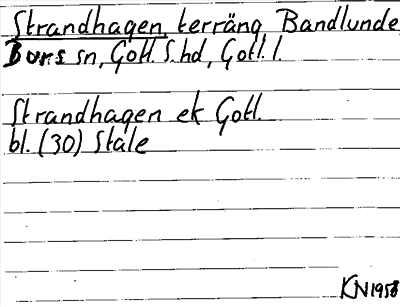 Strandhagen, terräng, Bandlunde
Burs sn, Gotl. S. hd, Gotl. l.
Strandhagen ek Gotl.
bl. (30) Stale
KN 1958